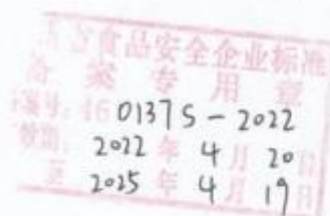 省食品安全企业标准
备案专用章
案号:460137S-2022
效期:2022年4月20日
至2025年4月19日